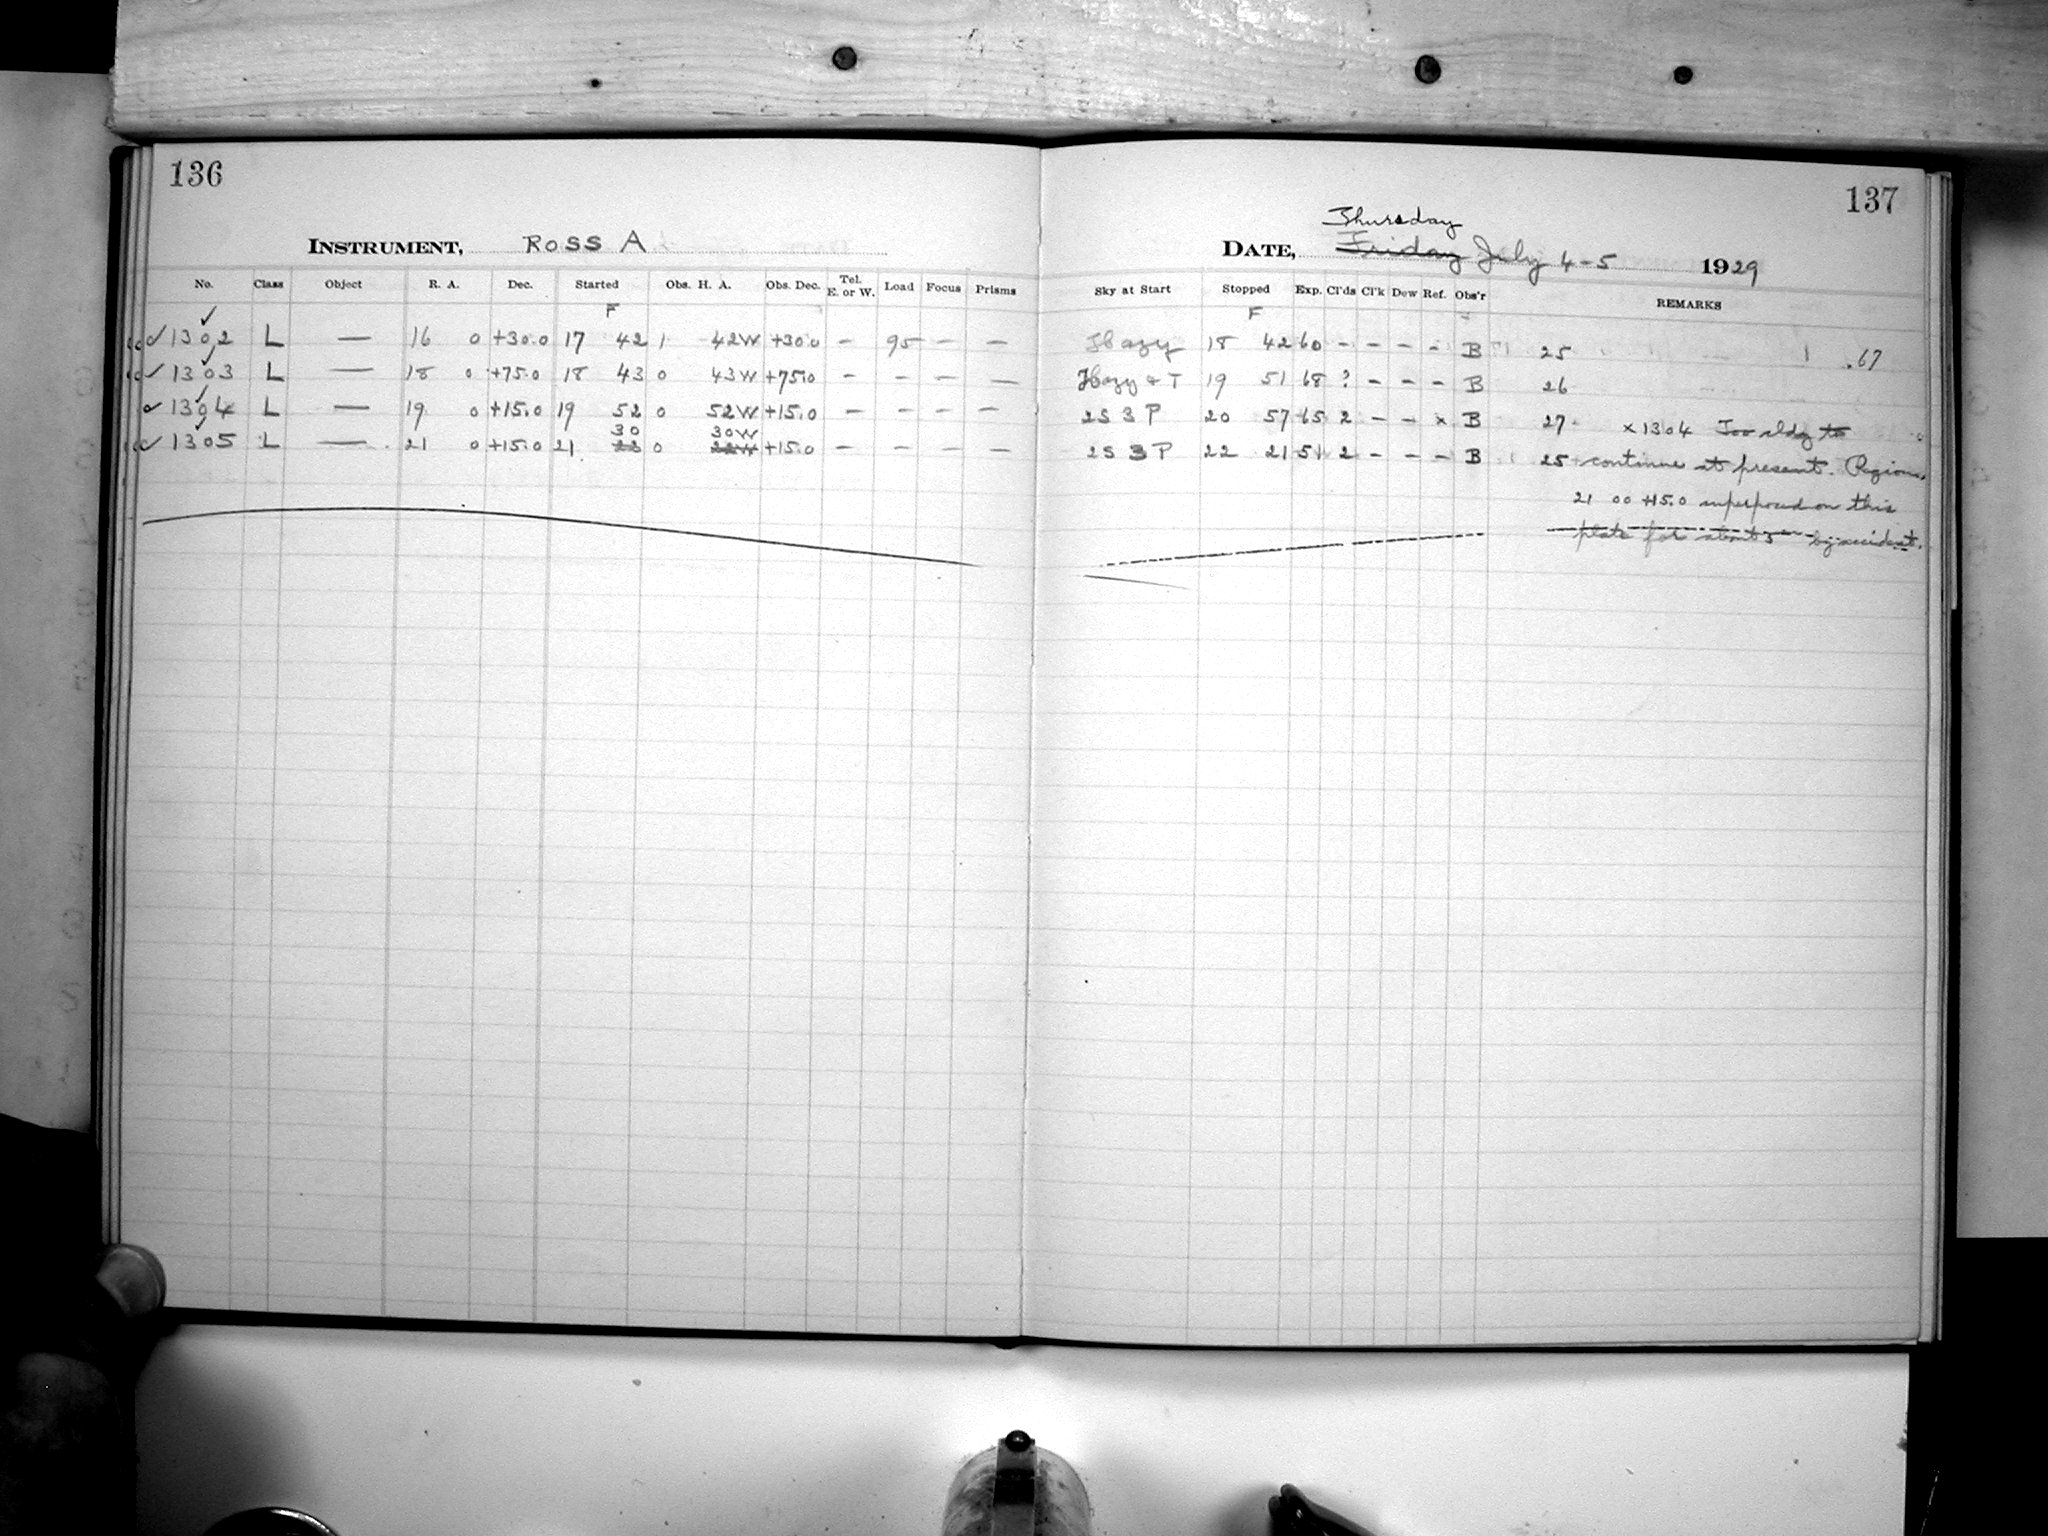 136
INSTRUMENT, ROSS A
No. Class Object R. A. Dec. Started Obs. H. A. Obs. Dec. Tel. E. or W. Load Focus Prisms
F
✓ 1302 L — 16 0 +30.0 17 42 1 42W +30.0 – 95 – –
✓ 1303 L — 18 0 +75.0 18 43 0 43W +75.0 – – – –
✓ 1304 L — 19 0 +15.0 19 52 0 52W +15.0 – – – –
30 30W
✓ 1305 L — 21 0 +15.0 21 22 0 22W +15.0 – – – –
137
Thursday
DATE, Friday July 4-5 1929
Sky at Start Stopped Exp. Cl'ds Cl'k Dew Ref. Obs'r REMARKS
F
Hazy 18 42 60 – – – – B 25 1 .67
Hazy & T 19 51 68 ? – – – B 26
2S 3 P 20 57 65 2 – – x B 27 x 1304 Too cldy to
2S 3 P 22 21 51 2 – – – B 25 continue at present. Region
21 00 +15.0 superposed on this
plate for about 5m by accident.